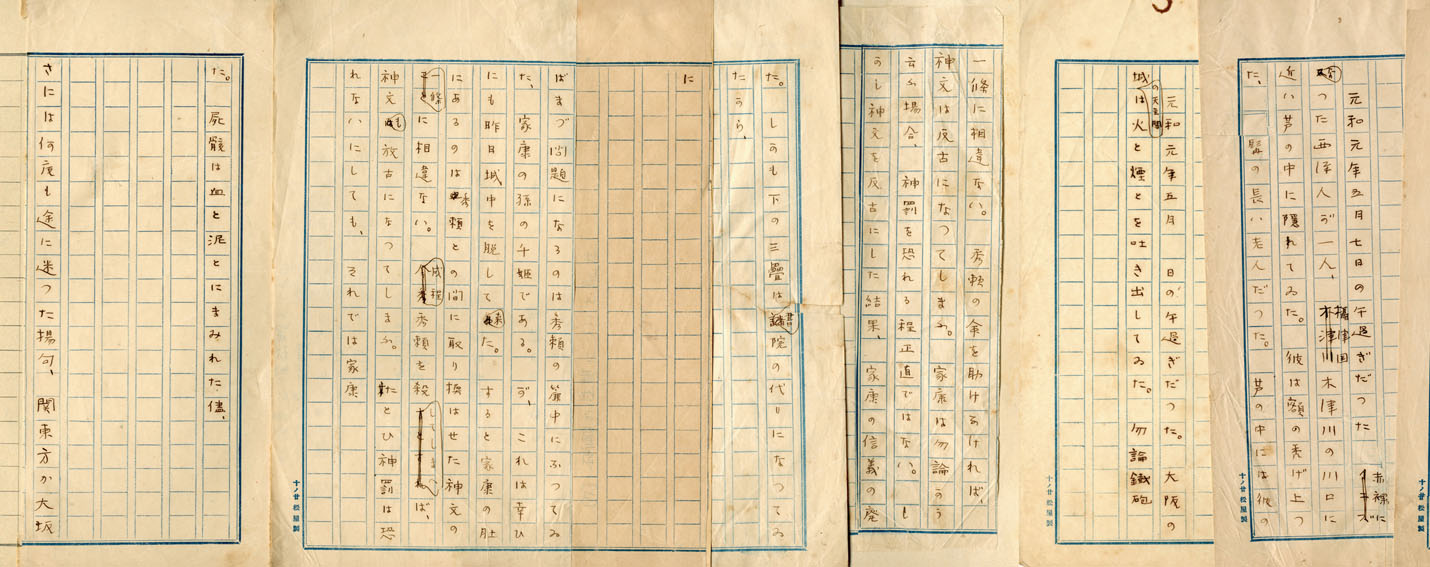 元和元年五月七日の午過ぎだつた 赤裸に
なつた西洋人が一人、摂津国木津川の川口に
近い芦の中に隠れてゐた。彼は額の禿げ上つ
た、髯の長い老人だつた。芦の中には彼の
十ノ廿 松屋製
元和元年五月 日の午過ぎだつた。大阪の
城の天主閣は火と煙とを吐き出してゐた。勿論鐵砲
十ノ廿 松屋製
一條に相違ない。秀頼の命を助けなければ、
神文は反古になつてしまふ。家康は勿論かう
云ふ場合、神罰を恐れる程正直ではない。し
かし神文を反古にした結果、家康の信義の廃
十ノ廿 松屋製
た。しかも下の三疊は書院の代りになつてゐ
たらう、
に
ばまづ問題になるのは秀頼の簾中になつてゐ
た、家康の孫の千姫である。が、これは幸ひ
にも昨日城中を脱して来た。すると家康の肚
にあるのは秀頼との間に取り換はせた神文の
一條に相違ない。成程秀頼を殺してしまへば、
神文も放古になつてしまふ。たとひ神罰は恐
れないにしても、それでは家康
十ノ廿 松屋製
た。屍骸は血と泥とにまみれた儘、
さには何度も途に迷つた揚句、関東方か大坂